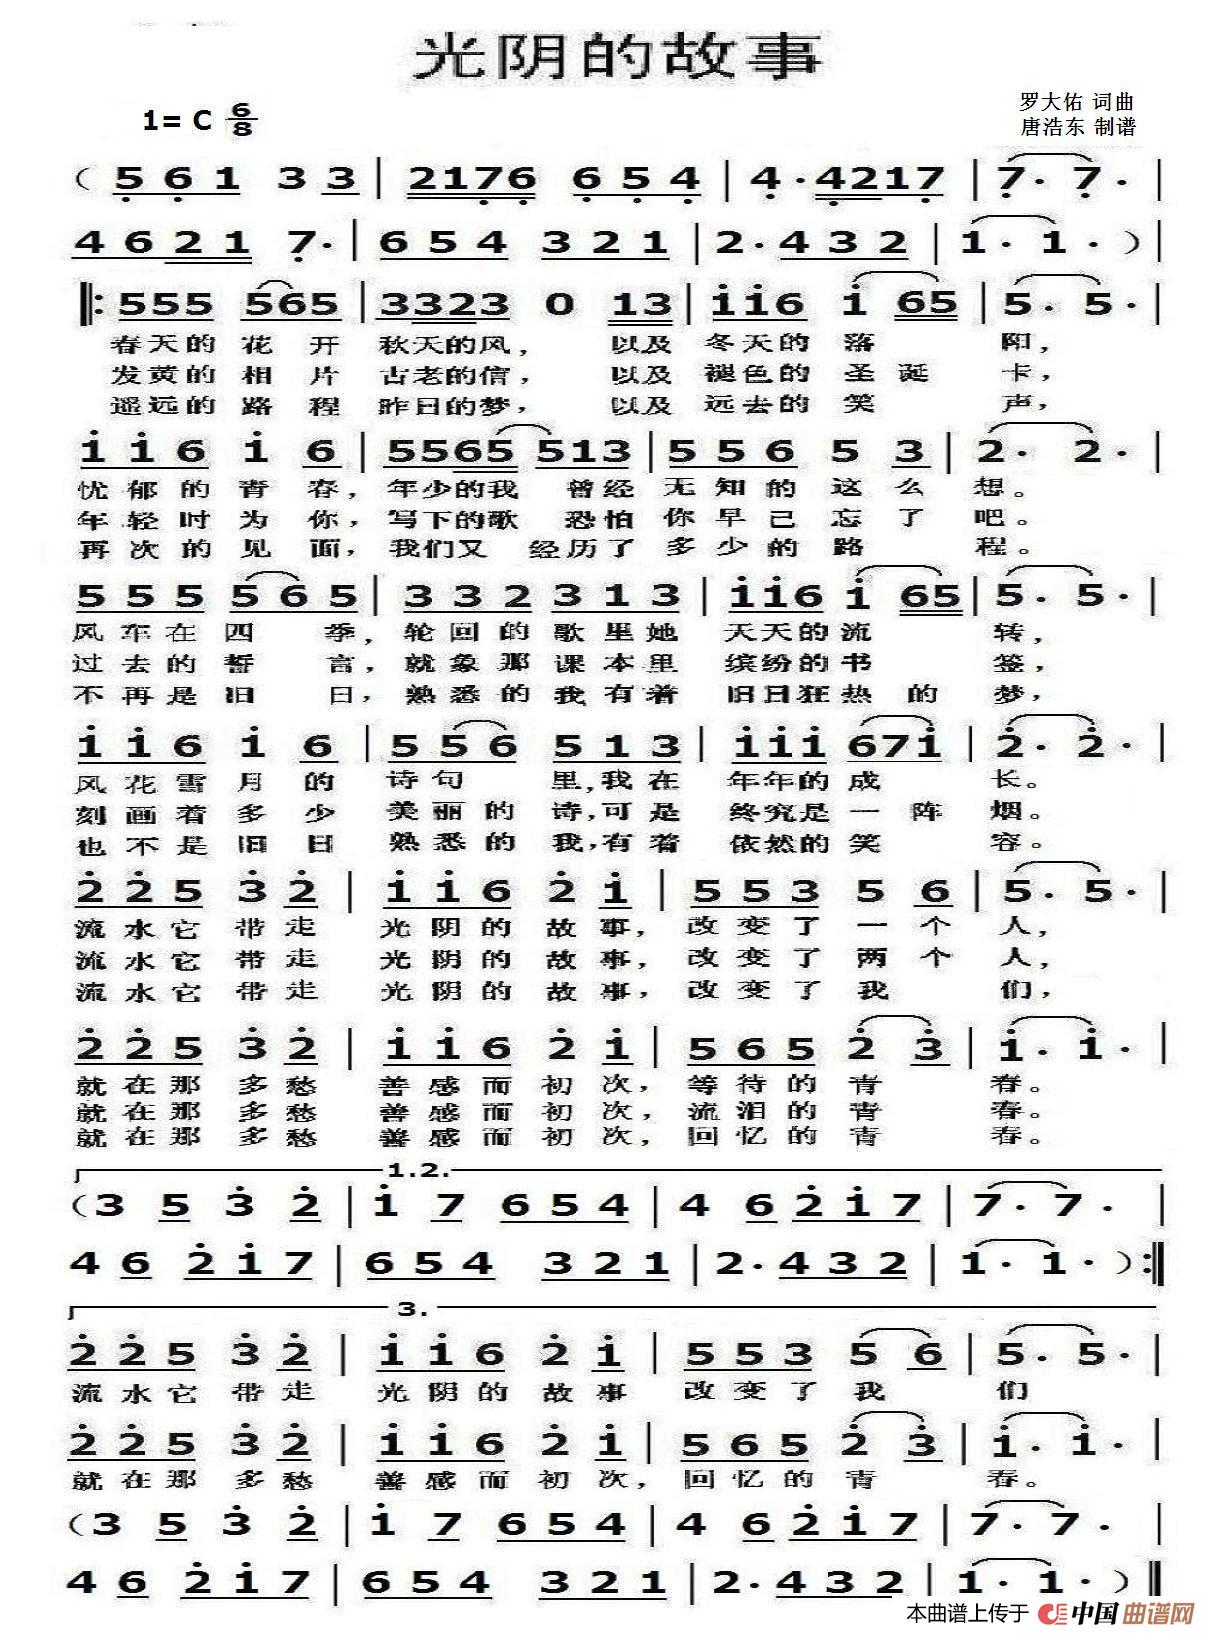 光阴的故事
1= C 6/8
罗大佑 词曲
唐浩东 制谱
( 5 6 1 3 3 | 2176 6 5 4 | 4 · 4217 | 7 · 7 · |
4 6 2 1 7 · | 6 5 4 3 2 1 | 2 · 4 3 2 | 1 · 1 · ) |
‖: 555 565 | 3323 0 13 | 116 1 65 | 5 · 5 · |
春天的 花 开 秋天的风， 以及 冬天的 落 阳，
发黄的 相 片 古老的信， 以及 褪色的 圣 诞 卡，
遥远的 路 程 昨日的梦， 以及 远去的 笑 声，
1 1 6 1 6 | 5565 513 | 5 5 6 5 3 | 2 · 2 · |
忧 郁 的 青 春， 年少的我 曾经 无 知 的 这 么 想。
年 轻 时 为 你， 写下的歌 恐怕 你 早 已 忘 了 吧。
再 次 的 见 面， 我们又 经历了 多 少 的 路 程。
5 5 5 5 6 5 | 3 3 2 3 1 3 | 116 1 65 | 5 · 5 · |
风 车 在 四 季， 轮 回 的 歌 里 她 天 天 的 流 转，
过 去 的 誓 言， 就 象 那 课 本 里 缤纷的 书 签，
不 再 是 旧 日， 熟 悉 的 我 有 着 旧日狂 热 的 梦，
1 1 6 1 6 | 5 5 6 5 1 3 | 111 671 | 2 · 2 · |
风 花 雪 月 的 诗 句 里，我 在 年年的 成 长。
刻 画 着 多 少 美 丽 的 诗，可 是 终究是 一 阵 烟。
也 不 是 旧 日 熟 悉 的 我，有 着 依然的 笑 容。
2 2 5 3 2 | 1 1 6 2 1 | 5 5 3 5 6 | 5 · 5 · |
流 水 它 带 走 光 阴 的 故 事， 改 变 了 一 个 人，
流 水 它 带 走 光 阴 的 故 事， 改 变 了 两 个 人，
流 水 它 带 走 光 阴 的 故 事， 改 变 了 我 们，
2 2 5 3 2 | 1 1 6 2 1 | 5 6 5 2 3 | 1 · 1 · |
就 在 那 多 愁 善 感 而 初 次， 等 待 的 青 春。
就 在 那 多 愁 善 感 而 初 次， 流 泪 的 青 春。
就 在 那 多 愁 善 感 而 初 次， 回 忆 的 青 春。
1.2.
( 3 5 3 2 | 1 7 6 5 4 | 4 6 2 1 7 | 7 · 7 · |
4 6 2 1 7 | 6 5 4 3 2 1 | 2 · 4 3 2 | 1 · 1 · ) :‖
3.
2 2 5 3 2 | 1 1 6 2 1 | 5 5 3 5 6 | 5 · 5 · |
流 水 它 带 走 光 阴 的 故 事 改 变 了 我 们
2 2 5 3 2 | 1 1 6 2 1 | 5 6 5 2 3 | 1 · 1 · |
就 在 那 多 愁 善 感 而 初 次， 回 忆 的 青 春。
( 3 5 3 2 | 1 7 6 5 4 | 4 6 2 1 7 | 7 · 7 · |
4 6 2 1 7 | 6 5 4 3 2 1 | 2 · 4 3 2 | 1 · 1 · ) ‖
本曲谱上传于 中国曲谱网